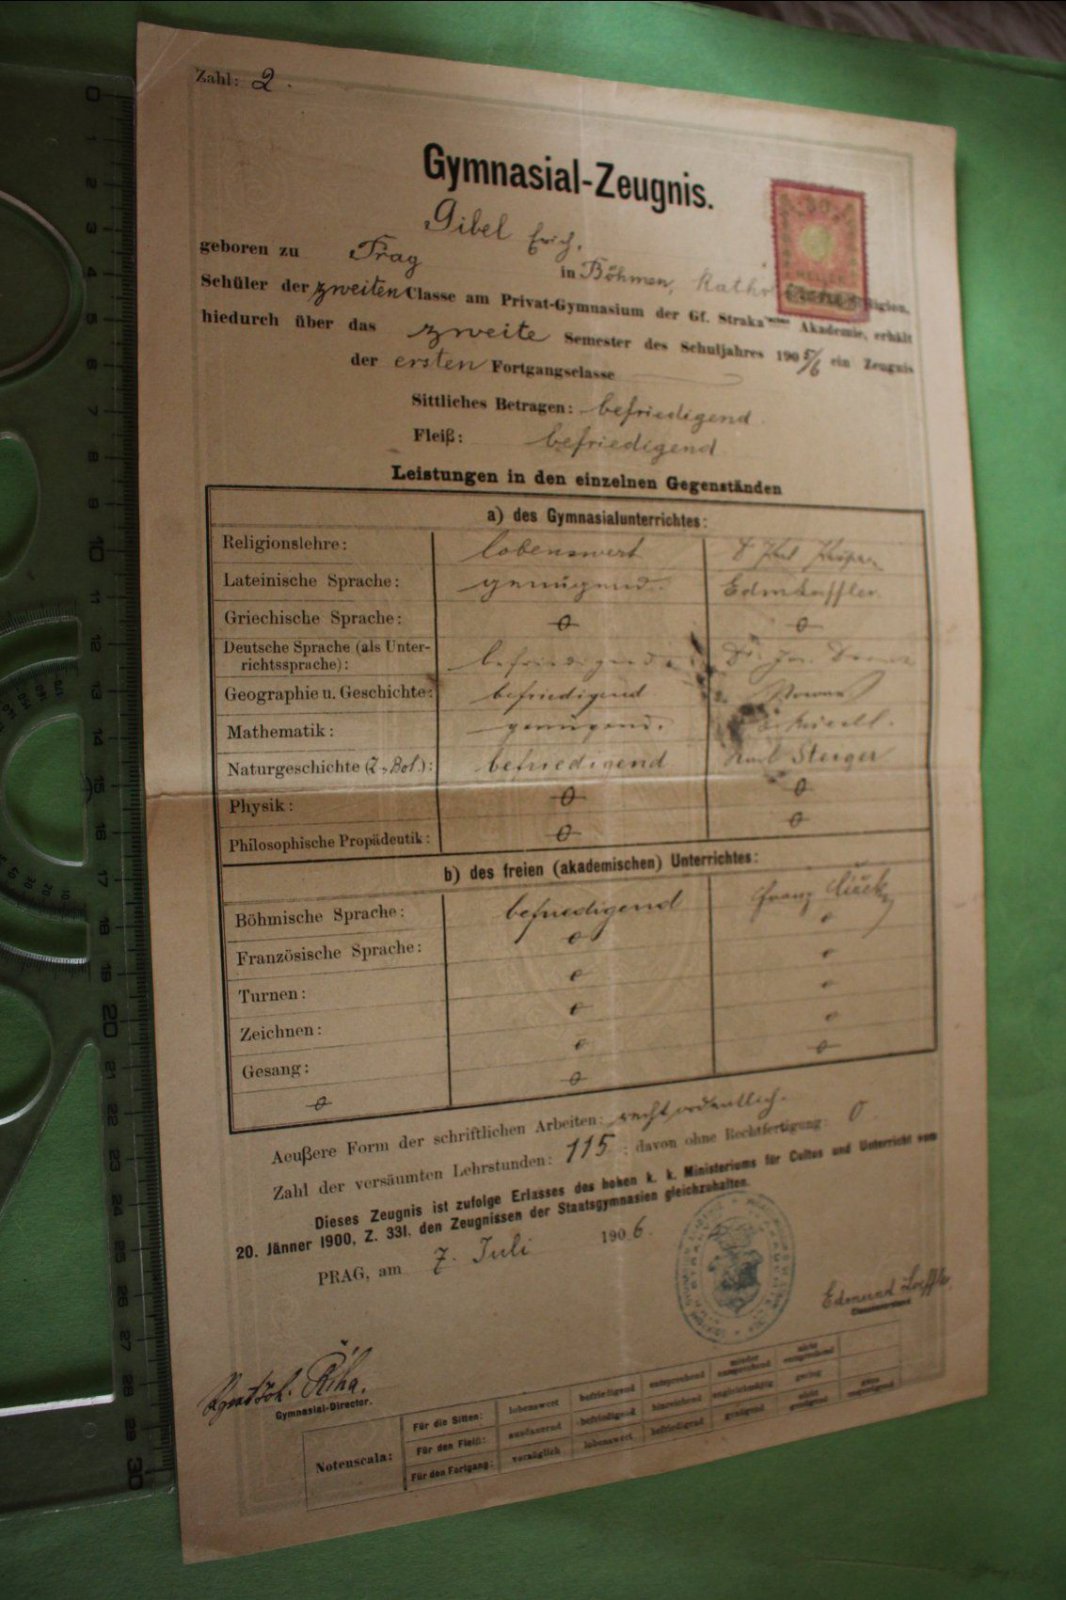 Zahl: 2.
Gymnasial-Zeugnis.
Gibel Erich.
geboren zu Prag in Böhmen, Kath. Religion,
Schüler der zweiten Classe am Privat-Gymnasium der Gf. Straka Akademie, erhält
hiedurch über das zweite Semester des Schuljahres 1905/6 ein Zeugnis
der ersten Fortgangsclasse
Sittliches Betragen: befriedigend
Fleiß: befriedigend
Leistungen in den einzelnen Gegenständen
a) des Gymnasialunterrichtes:
Religionslehre: lobenswert
Lateinische Sprache: genügend.
Griechische Sprache: 0 0
Deutsche Sprache (als Unter-
richtssprache): befriedigend
Geographie u. Geschichte: befriedigend
Mathematik: genügend.
Naturgeschichte (Z., Bot.): befriedigend Karl Steiger
Physik: 0 0
Philosophische Propädeutik: 0 0
b) des freien (akademischen) Unterrichtes:
Böhmische Sprache: befriedigend Franz
Französische Sprache: 0 0
Turnen: 0 0
Zeichnen: 0 0
Gesang: 0 0
0 0 0
Aeußere Form der schriftlichen Arbeiten: recht ordentlich.
Zahl der versäumten Lehrstunden: 115; davon ohne Rechtfertigung: 0.
Dieses Zeugnis ist zufolge Erlasses des hohen k. k. Ministeriums für Cultus und Unterricht vom
20. Jänner 1900, Z. 331, den Zeugnissen der Staatsgymnasien gleichzuhalten.
PRAG, am 7. Juli 1906.
Edmund
Říha.
Gymnasial-Director.
Notenscala:
Für die Sitten: lobenswert befriedigend entsprechend minder entsprechend nicht entsprechend
Für den Fleiß: ausdauernd befriedigend hinreichend ungleichmäßig gering
Für den Fortgang: vorzüglich lobenswert befriedigend genügend nicht genügend ganz ungenügend
0 1 2 3 4 5 6 7 8 9 10 11 12 13 14 15 16 17 18 19 20 21 22 23 24 25 26 27 28 29 30